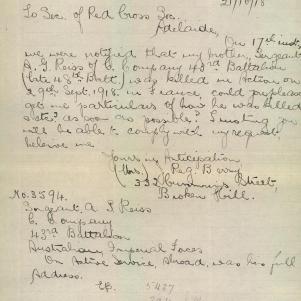 21/10/18
To Sec. of Red Cross Soc.
Adelaide,
On 17th inst,
we were notified that my brother, Sergeant
A. J. Reiss of C Company 43rd Battalion
(late 48th Batt) was killed in Action on
29th Sept. 1918. in France, could you please
get me particulars of how he was killed
etc? as soon as possible? Trusting you
will be able to comply with my request
believe me
Yours in Anticipation
(Mrs.) Peg
332 Cummings Street,
Broken Hill.
No. 3594.
Sergeant A J Reiss
C. Company
43rd Battalion
Australian Imperial Forces
On Active Service, Abroad, was his full
Address.
5427